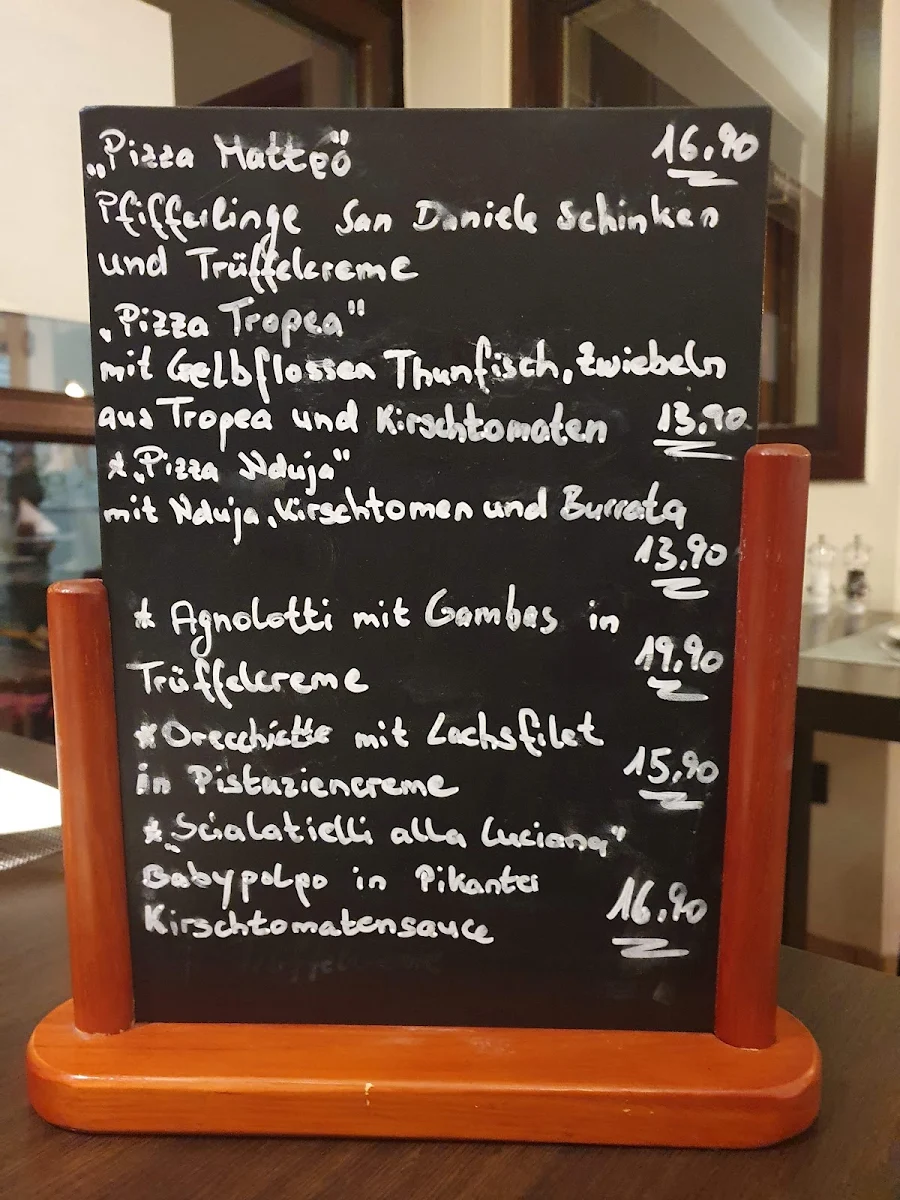 „Pizza Matteo" 16.90
Pfifferlinge San Daniele Schinken
und Trüffelcreme
„Pizza Tropea"
mit Gelbflossen Thunfisch, Zwiebeln
aus Tropea und Kirschtomaten 13.90
* „Pizza Nduja"
mit Nduja, Kirschtomen und Burrata
13.90
* Agnolotti mit Gambas in
Trüffelcreme 19.90
* Orecchiette mit Lachsfilet
in Pistaziencreme 15.90
* „Scialatielli alla Luciana"
Babypolpo in Pikanter
Kirschtomatensauce 16.90